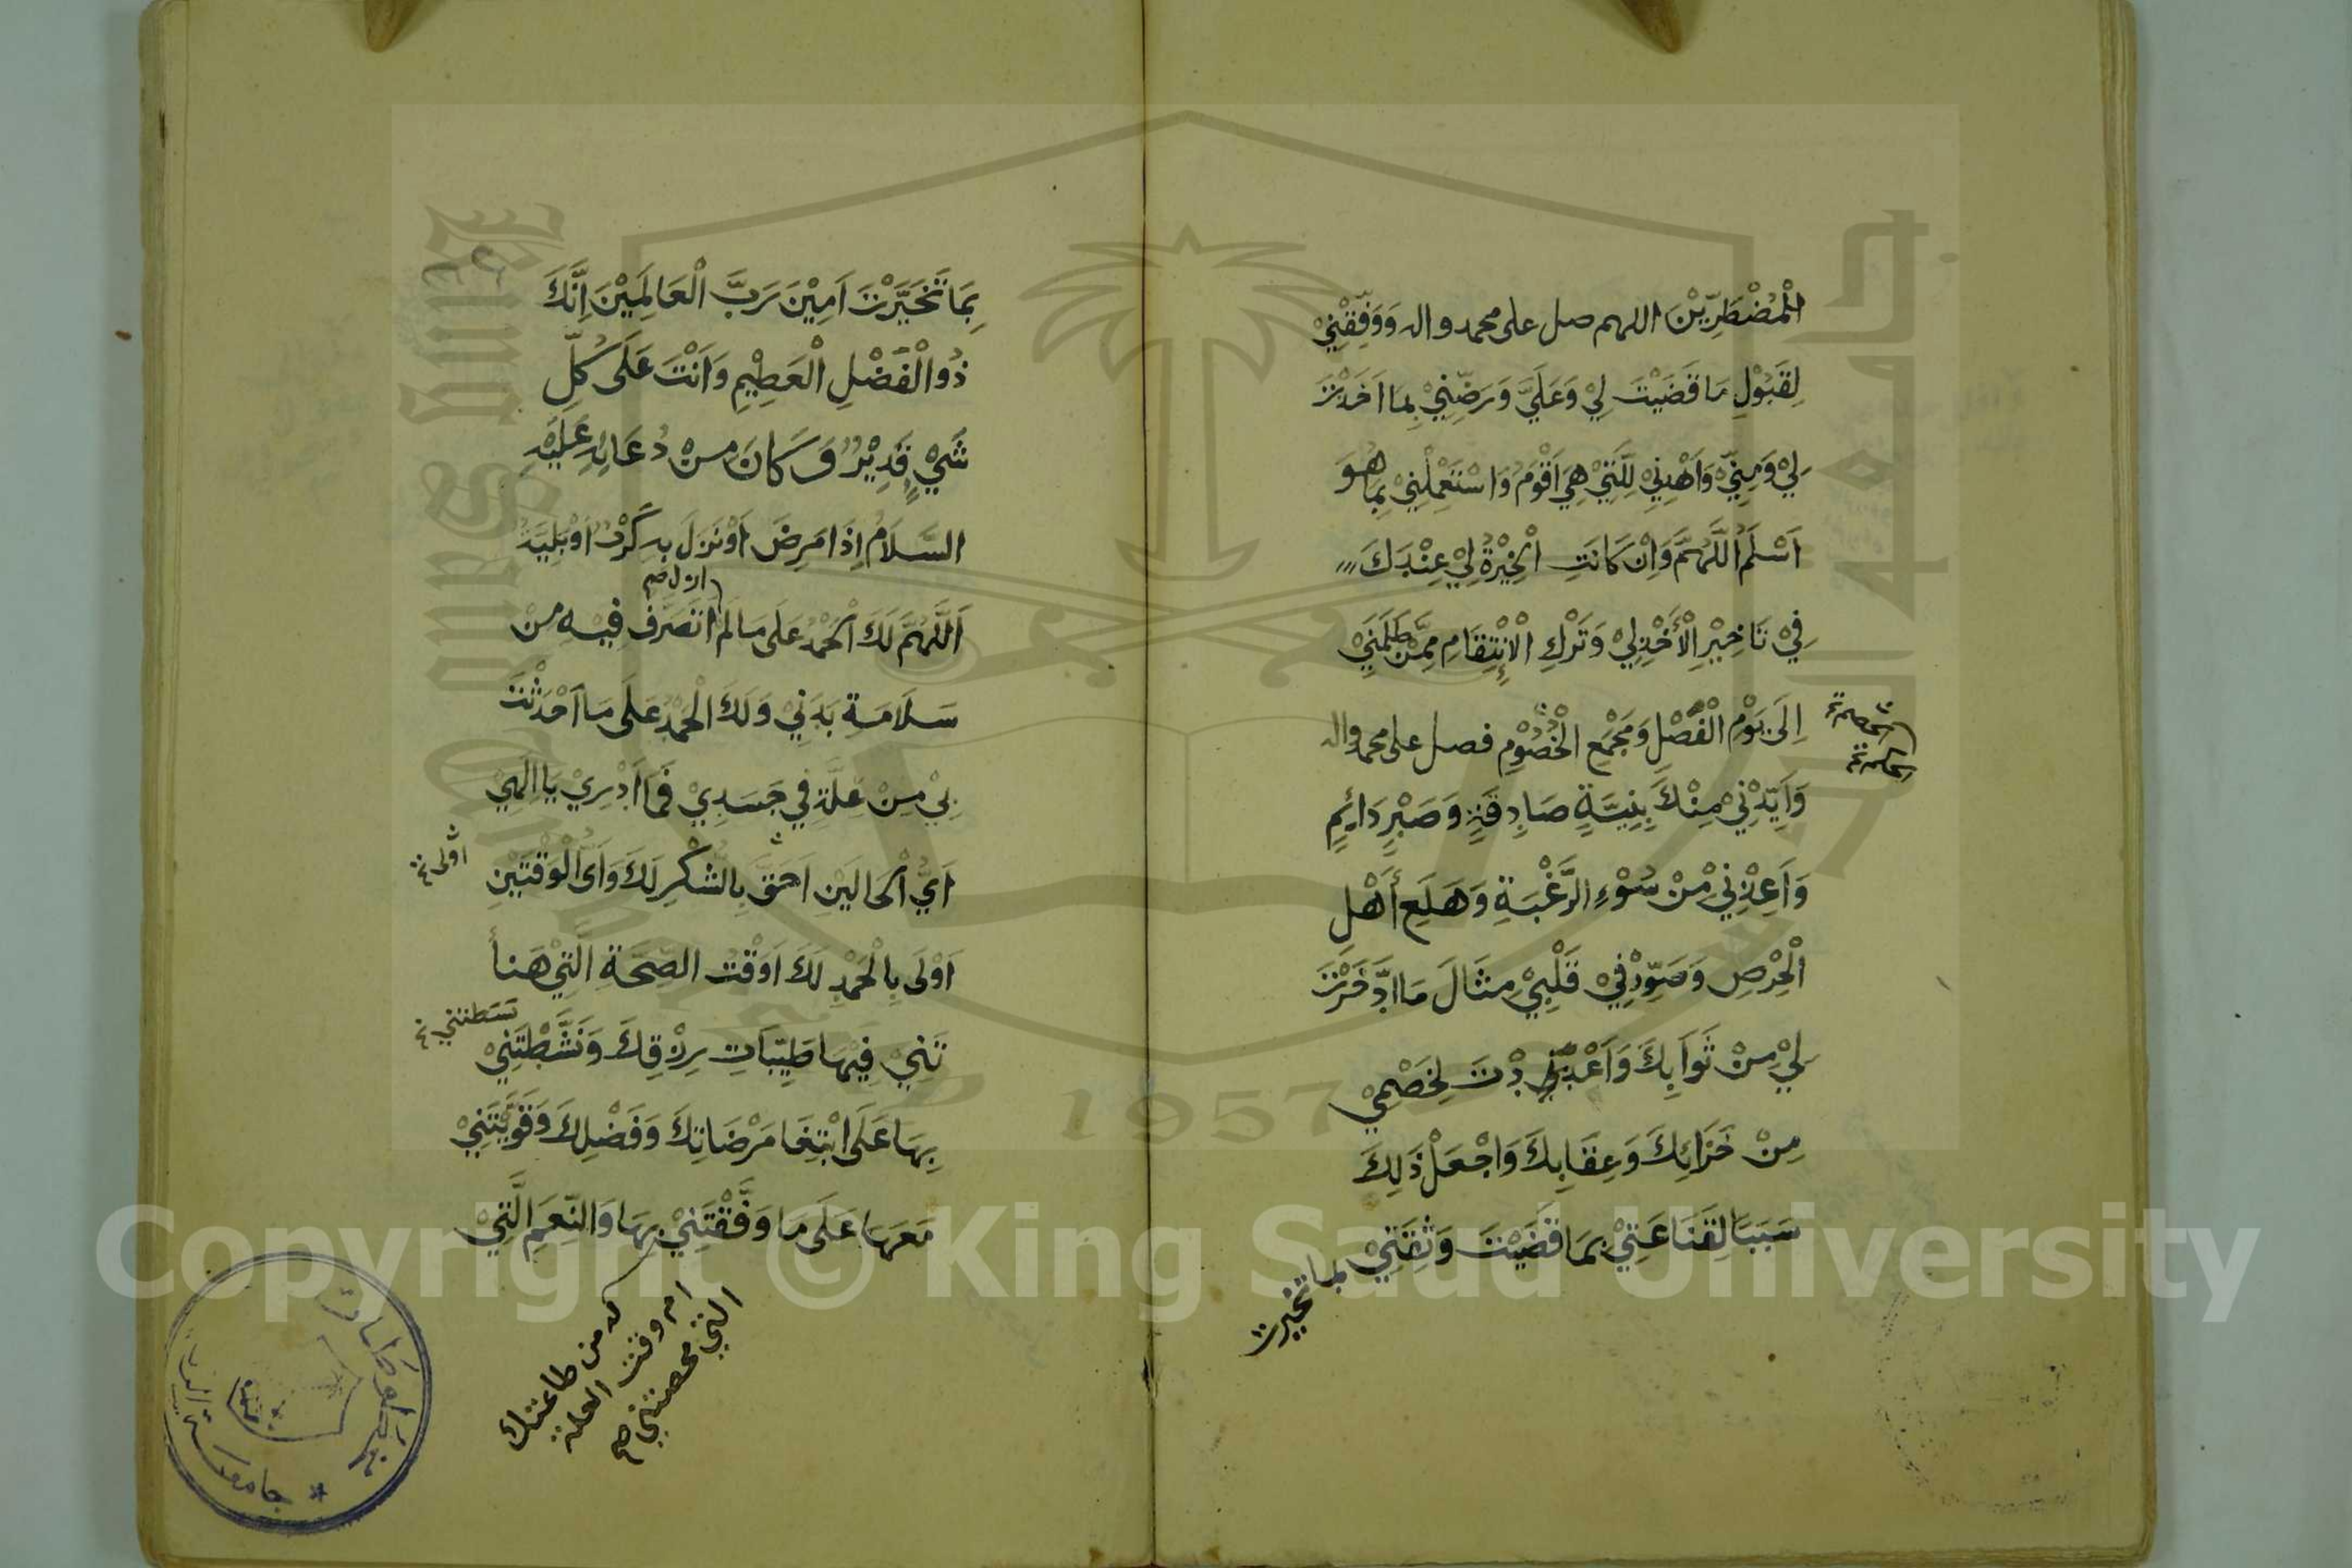 الْمُضْطَرِّيْنَ اللهم صل على محمد واله وَوَفِّقْنِيْ
لِقَبُوْلِ مَا قَضَيْتَ لِيْ وَعَلَيَّ وَرَضِّنِيْ بِمَا اَخَذْتَ
لِيْ وَمِنِّيْ وَاهْدِنِيْ لِلَّتِيْ هِيَ اَقْوَمُ وَاسْتَعْمِلْنِيْ بِمَا هُوَ
اَسْلَمُ اَللَّهُمَّ وَاِنْ كَانَتِ الْخِيْرَةُ لِيْ عِنْدَكَ
فِيْ تَاخِيْرِ الْأَخْذِ لِيْ وَتَرْكِ الْإِنْتِقَامِ مِمَّنْ ظَلَمَنِيْ
اِلَى يَوْمِ الْفَصْلِ وَمَجْمَعِ الْخُصُوْمِ فصل على محمد واله
وَاَيِّدْنِيْ مِنْكَ بِنِيَّةٍ صَادِقَةٍ وَصَبْرٍ دَائِمٍ
وَاَعِذْنِيْ مِنْ سُوْءِ الرَّغْبَةِ وَهَلَعِ أَهْلِ
الْحِرْصِ وَصَوِّرْ فِيْ قَلْبِيْ مِثَالَ مَا ادَّخَرْتَ
لِيْ مِنْ ثَوَابِكَ وَاَعْدَدْتَ لِخَصْمِيْ
مِنْ جَزَائِكَ وَعِقَابِكَ وَاجْعَلْ ذَلِكَ
سَبَبًا لِقَنَاعَتِيْ بِمَا قَضَيْتَ وَثِقَتِيْ
بما تخيرت
بِمَا تَخَيَّرْتَ اَمِيْنَ رَبَّ الْعَالَمِيْنَ اِنَّكَ
ذُو الْفَضْلِ الْعَظِيْمِ وَاَنْتَ عَلَى كُلِّ
شَيْءٍ قَدِيْرٌ وَكَانَ مِنْ دُعَائِهِ عَلَيْهِ
السَّلَامُ اِذَا مَرِضَ اَوْ نَزَلَ بِهِ كَرْبٌ اَوْ بَلِيَّةٌ
ازل صح
اَللَّهُمَّ لَكَ الْحَمْدُ عَلَى مَا لَمْ اَتَصَرَّفُ فِيْهِ مِنْ
سَلَامَةِ بَدَنِيْ وَلَكَ الْحَمْدُ عَلَى مَا اَحْدَثْتَ
بِيْ مِنْ عِلَّةٍ فِيْ جَسَدِيْ فَمَا اَدْرِيْ يَا اِلَهِيْ
اَيُّ الْحَالَيْنِ اَحَقُّ بِالشُّكْرِ لَكَ وَاَيُّ الْوَقْتَيْنِ
اَوْلَى بِالْحَمْدِ لَكَ اَوَقْتُ الصِّحَّةِ الَّتِيْ هَنأ
تَنِيْ فِيْهَا طَيِّبَاتِ رِزْقِكَ وَنَشَّطْتَنِيْ
بِهَا عَلَى ابْتِغَا مَرْضَاتِكَ وَفَضْلِكَ وَقَوَّيْتَنِيْ
مَعَهَا عَلَى مَا وَفَّقْتَنِيْ بِهَا وَالنِّعَمِ الَّتِيْ
له من طاعتك
ام وقت العلة
التي محصتني صح
جامعة
1957
Copyright © King Saud University